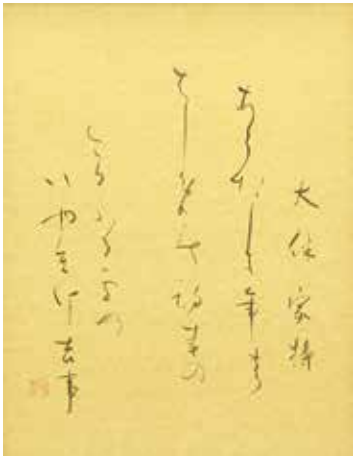 大伴家持
あらたしき年の
はしめの初春の
けふふる雪の
いや重け吉事